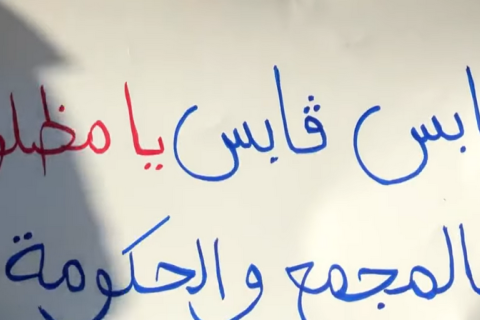 ابس ڨابس يا مظلو
المجمع والحكومة